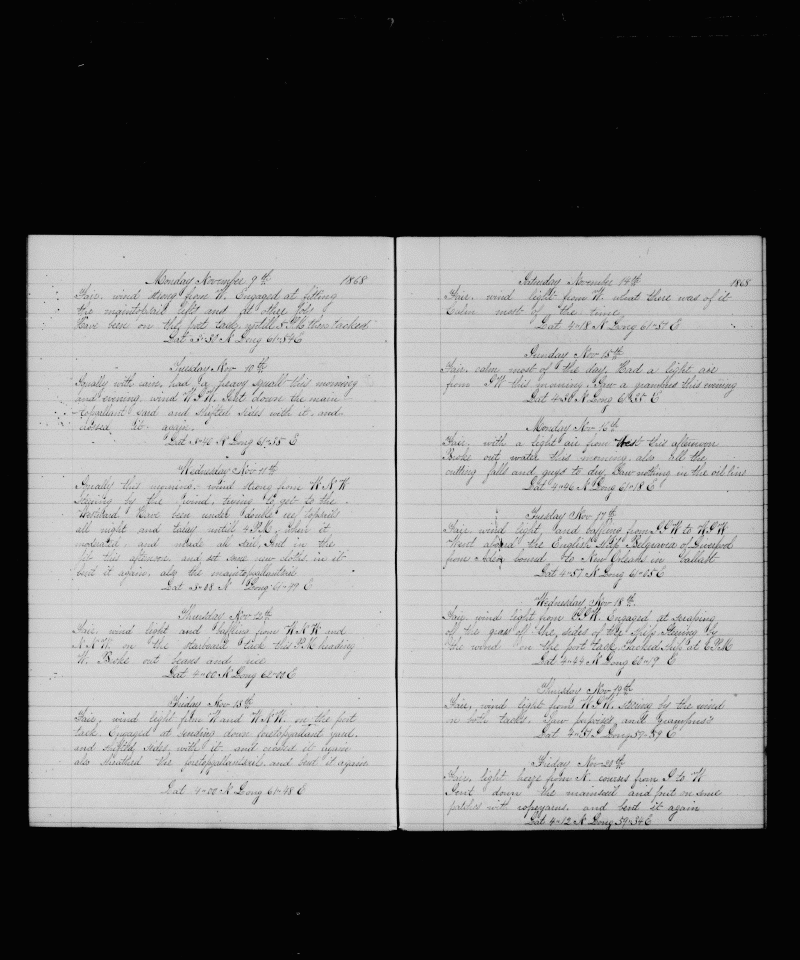 Monday November 9th 1868
Fair, wind strong from W. Engaged at fitting
the maintopsail lifts and at other jobs
Have been on the port tack untill 5 PM then tacked
Lat 3-30 N Long 61-54 E
Tuesday Nov 10th
Squally with rain, had a heavy squall this morning
and evening, wind W.S.W. Sent down the main
topgallant yard and shifted sides with it, and
crossed it again.
Lat 3-40 N Long 61-35 E
Wednesday Nov 11th
Squally this morning, wind strong from W.N.W
Steering by the wind, trying to get to the
Westward Have been under double reef topsails
all night and today untill 4 PM, then it
moderated, and made all sail, Sent in the
jib this afternoon and set some new cloths in it
bent it again, also the maintopgallantsail
Lat 3-08 N Long 61-49 E
Thursday Nov 12th
Fair, wind light and baffling from W.N.W and
N.N.W. on the starboard tack this PM heading
W. Broke out beans and rice
Lat 4-00 N Long 62-00 E
Friday Nov 13th
Fair, wind light from W and W.N.W. on the port
tack Engaged at sending down foretopgallant yard,
and shifted sides with it and crossed it again
also the foretopgallantsail and bent it again
Lat 4-00 N Long 61-48 E
Saturday November 14th 1868
Fair, wind light from W. what there was of it
Calm most of the time,
Lat 4-18 N Long 61-37 E
Sunday Nov 15th
Fair, calm most of the day, Had a light air
from S.W this morning Saw a grampus this evening
Lat 4-30 N Long 61-25 E
Monday Nov 16th
Fair, with a light air from West this afternoon
Broke out water this morning also all the
cutting falls and guys to dry, Saw nothing in the oil line
Lat 4-46 N Long 61-18 E
Tuesday Nov 17th
Fair, wind light, and baffling from S.S.W to W.S.W
Went aboard the English Ship Belgravia of Liverpool
from Aden bound to New Orleans in ballast
Lat 4-57 N Long 61-05 E
Wednesday Nov 18th
Fair, wind light from W.S.W. Engaged at scraping
off the grass off the sides of the Ship Steering by
the wind on the port tack, Tacked ship at 6 PM
Lat 4-44 N Long 60-19 E
Thursday Nov 19th
Fair, wind light from W.S.W. steering by the wind
on both tacks. Saw porpoises and grampuses
Lat 4-31 Long 59-59 E
Friday Nov 20th
Fair, light airs from N. courses from S to W
Sent down the mainsail and put on some
patches with ropeyarns, and bent it again
Lat 4-12 N Long 59-34 E